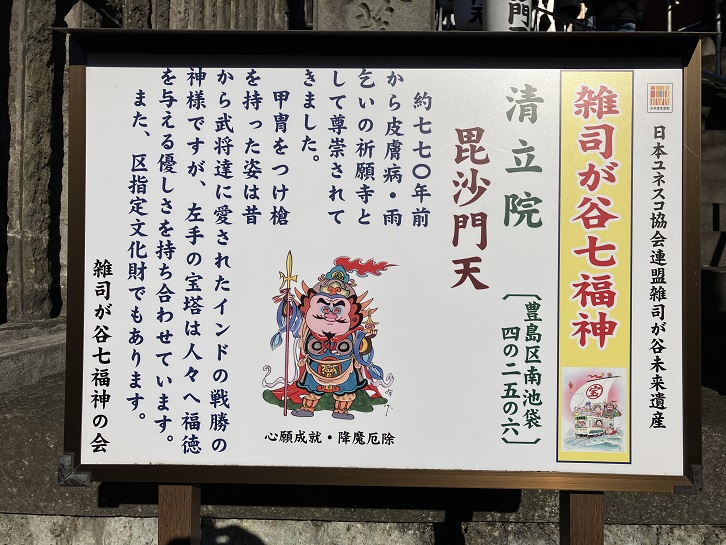 日本ユネスコ協会連盟雑司が谷未来遺産
雑司が谷七福神
宝
清立院
〔豊島区南池袋
四の二五の六〕
毘沙門天
約七七〇年前
から皮膚病・雨
乞いの祈願寺と
して尊崇されて
きました。
甲冑をつけ槍
を持った姿は昔
から武将達に愛されたインドの戦勝の
神様ですが、左手の宝塔は人々へ福徳
を与える優しさを持ち合わせています。
また、区指定文化財でもあります。
心願成就・降魔厄除
雑司が谷七福神の会
門天